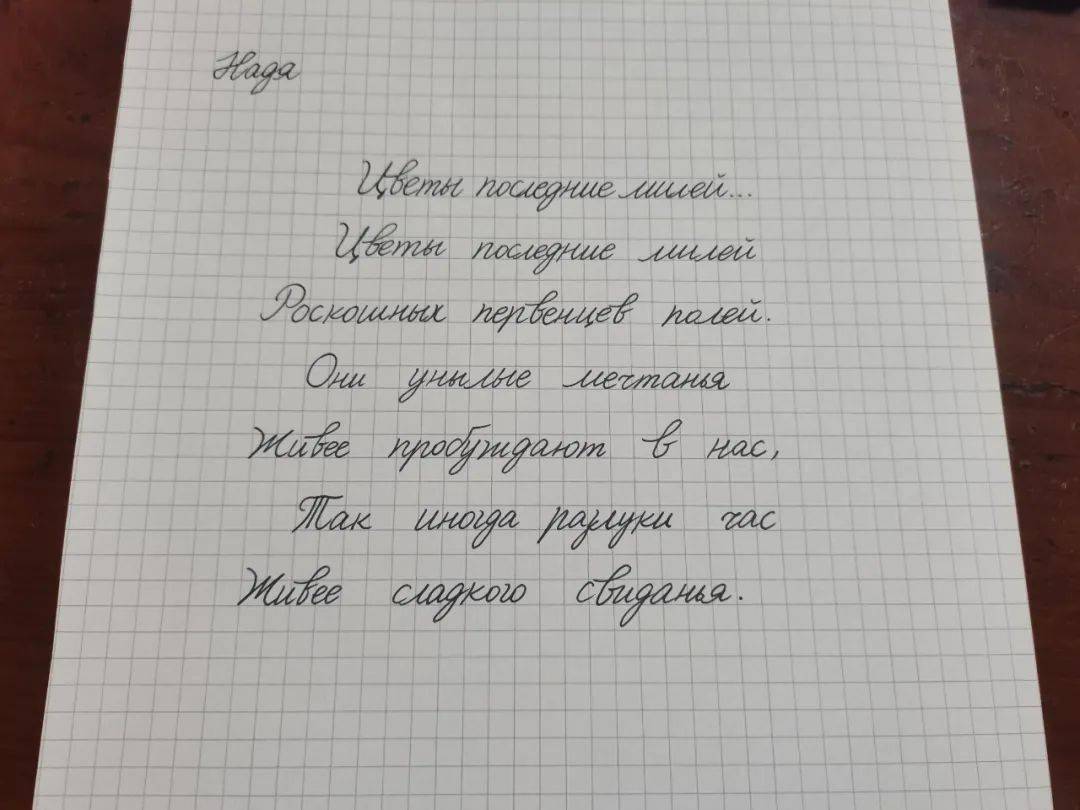 Надя
Цветы последние милей...
Цветы последние милей
Роскошных первенцев полей.
Они унылые мечтанья
Живее пробуждают в нас,
Так иногда разлуки час
Живее сладкого свиданья.